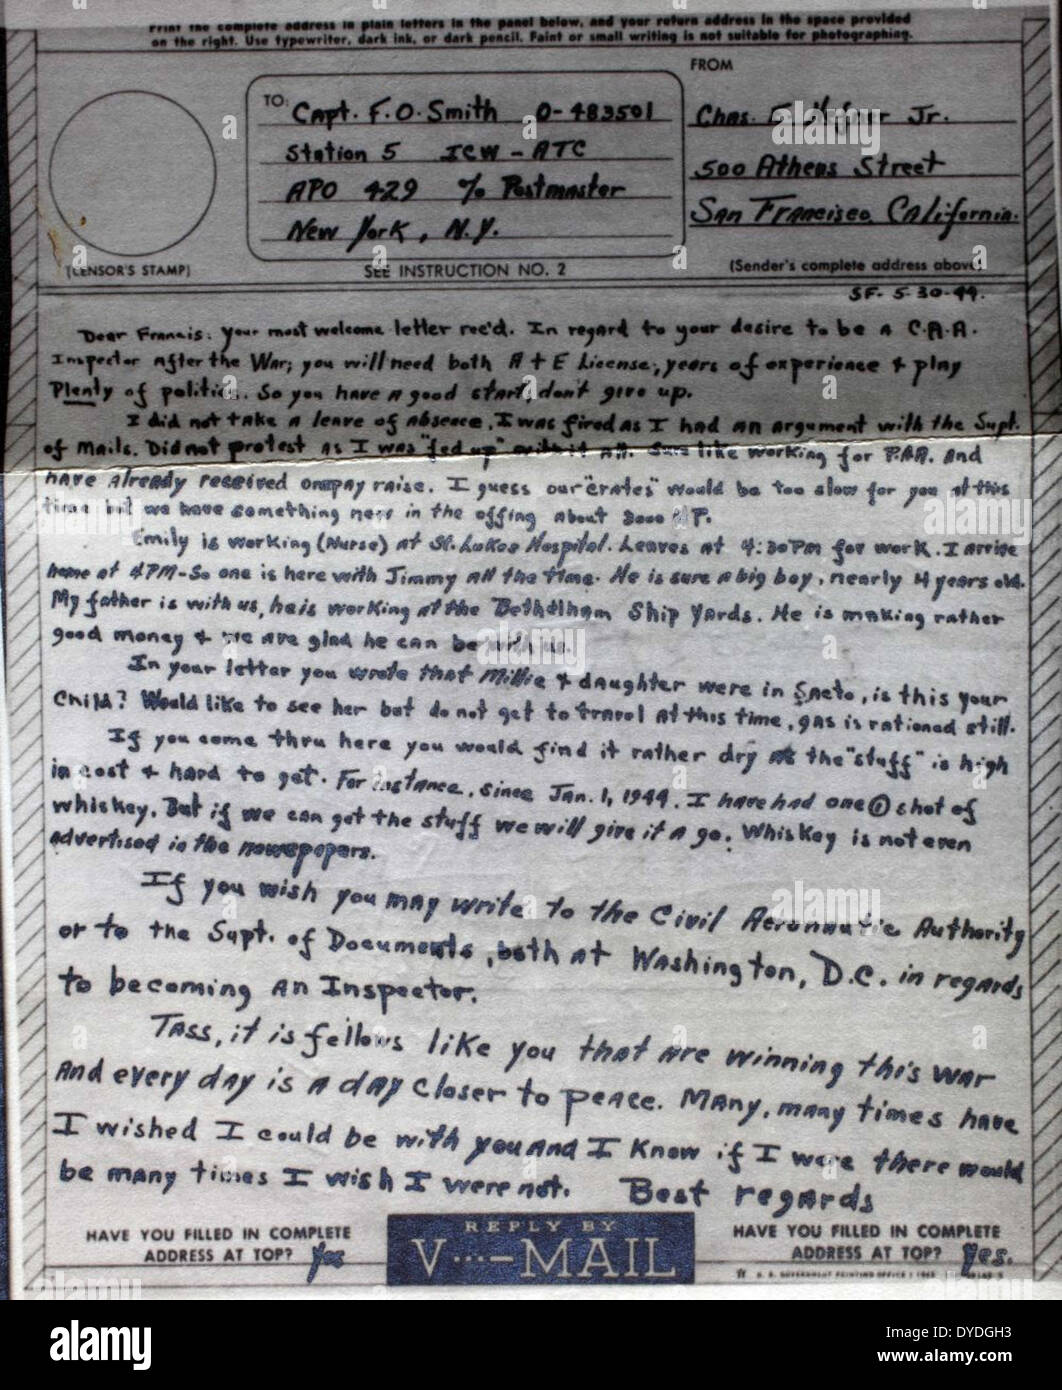 Print the complete address in plain letters in the panel below, and your return address in the space provided
on the right. Use typewriter, dark ink, or dark pencil. Faint or small writing is not suitable for photographing.
FROM
TO:
Capt. F. O. Smith 0-483501
Station 5 ICW - ATC
APO 429 % Postmaster
New York, N.Y.
Chas. Jr.
500 Athens Street
San Francisco, California.
(CENSOR'S STAMP)
SEE INSTRUCTION NO. 2
(Sender's complete address above)
SF- 5-30-44.
Dear Francis: Your most welcome letter rec'd. In regard to your desire to be a C.A.A.
Inspector after the War; you will need both A + E License, years of experience + play
Plenty of politics. So you have a good start, don't give up.
I did not take a leave of absence, I was fired as I had an argument with the Supt.
of Mails. Did not protest as I was "fed up" with it all. Sure like working for P.A.A. and
have already received one pay raise. I guess our "crates" would be too slow for you at this
time but we have something new in the offing about 3000 H.P.
Emily is working (Nurse) at St. Lukes Hospital. Leaves at 4:30PM for work. I arrive
home at 4PM - So one is here with Jimmy all the time. He is sure a big boy, nearly 4 years old.
My father is with us, he is working at the Bethelham Ship Yards. He is making rather
good money + we are glad he can be with us.
In your letter you wrote that Millie + daughter were in Sacto, is this your
Child? Would like to see her but do not get to travel at this time, gas is rationed still.
If you come thru here you would find it rather dry as the "stuff" is high
in cost + hard to get. For instance, since Jan. 1, 1944. I have had one ① shot of
whiskey. But if we can get the stuff we will give it a go. Whiskey is not even
advertised in the newspapers.
If you wish you may write to the Civil Aeronautic Authority
or to the Supt. of Documents, both at Washington, D.C. in regards
to becoming an Inspector.
Tass, it is fellows like you that are winning this war
and every day is a day closer to peace. Many, many times have
I wished I could be with you and I know if I were there would
be many times I wish I were not. Best regards
HAVE YOU FILLED IN COMPLETE
ADDRESS AT TOP? Yes
REPLY BY
V···—MAIL
HAVE YOU FILLED IN COMPLETE
ADDRESS AT TOP? Yes.
U. S. GOVERNMENT PRINTING OFFICE
alamy
Image ID: DYDGH3
www.alamy.com